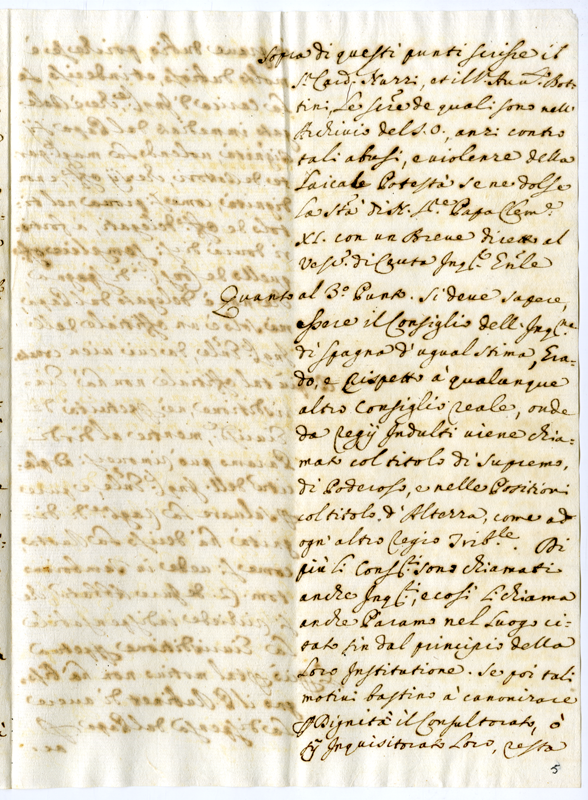 Sopra di questi punti scrisse il
S.r Card. Nerri, et ill.e Auu.o Bot-
tini, Le scr.e de quali sono nell'
Archivio del S.O., anzi contro
tali abusi, e violenze della
Laicale Potestà se ne dolse
La S.tà di N. S.re Papa Clem.e
XI. con un Breve diretto al
Vesc.o di Ceuta Inq.r Gnle
Quanto al 3.o Punto. Si deve sapere,
essere il Consiglio dell'Inq.ne
di Spagna d'ugual stima, Gra-
do, e Rispetto à qualunque
altro Consiglio reale, onde
da regij Indulti viene chia-
mato col titolo di Supremo,
di Poderoso, e nelle Positioni
col titolo d'Altezza, come ad
ogn'altro Regio Trib.le. Di
più li Cons.ri sono chiamati
anche Inq.ri, e così li chiama
anche Paramo nel Luogo ci-
tato fin dal principio della
Loro Institutione. Se poi tali
motivi bastino à canonizare
p Dignità il Consultorato, ò
sij Inquisitorato Loro, resta
5